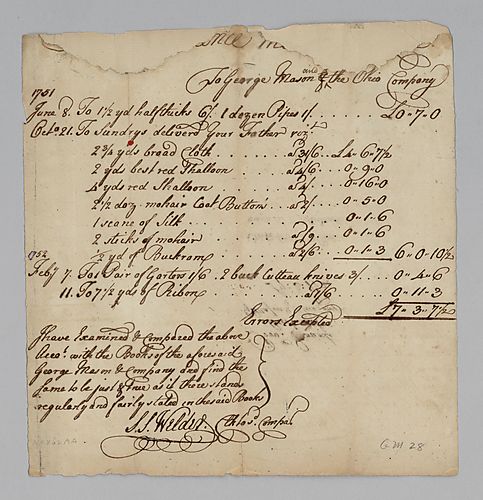 To George Mason and & the Ohio Company
1751
June 8. To 1 1/2 yd halfthicks 6/. 1 dozen Pipes 1/. £0-7-0
Octo. 21. To Sundrys deliverd your Father vizt.
2 3/4 yds broad Cloth a 31/6 £4-6-7 1/2
2 yds best red Shalloon a 4/6 0-9-0
4 yds red Shalloon a 4/ 0-16-0
2 1/2 doz. mohair Coat Buttons a 2/ 0-5-0
1 scane of Silk 0-1-6
2 sticks of mohair a /9 0-1-6
1/2 yd of Buckram a 2/6 0-1-3 6-0-10 1/2
1752
Feby 7. To 1 Pair of Garters 1/6 2 buck Cuteau knives 3/ 0-4-6
11. To 7 1/2 yds of Ribon a 1/6 0-11-3
£7-3-7 1/2
Errors Excepted
I have Examined & Compared the above
Acco.t with the Books of the aforesaid
George Mason & Company and find the
same to be just & true as it there stands
regularly and fairly stated in the said Books
Compa.
GM 28